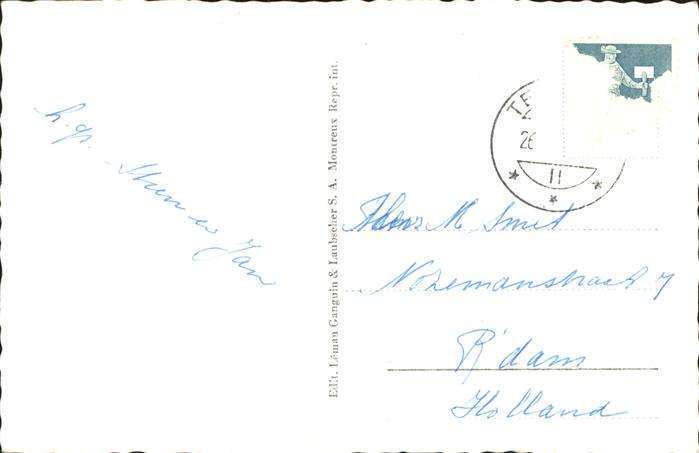 h. gr.
en Jan
Edit. Léman Ganguin & Laubscher S. A. Montreux Repr. int.
TE
26
II
M. Smit
Nozemanstraat 7
R'dam
Holland